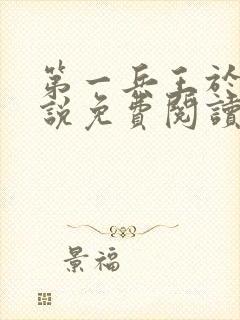 第一兵王於
說免費閱讀
景福